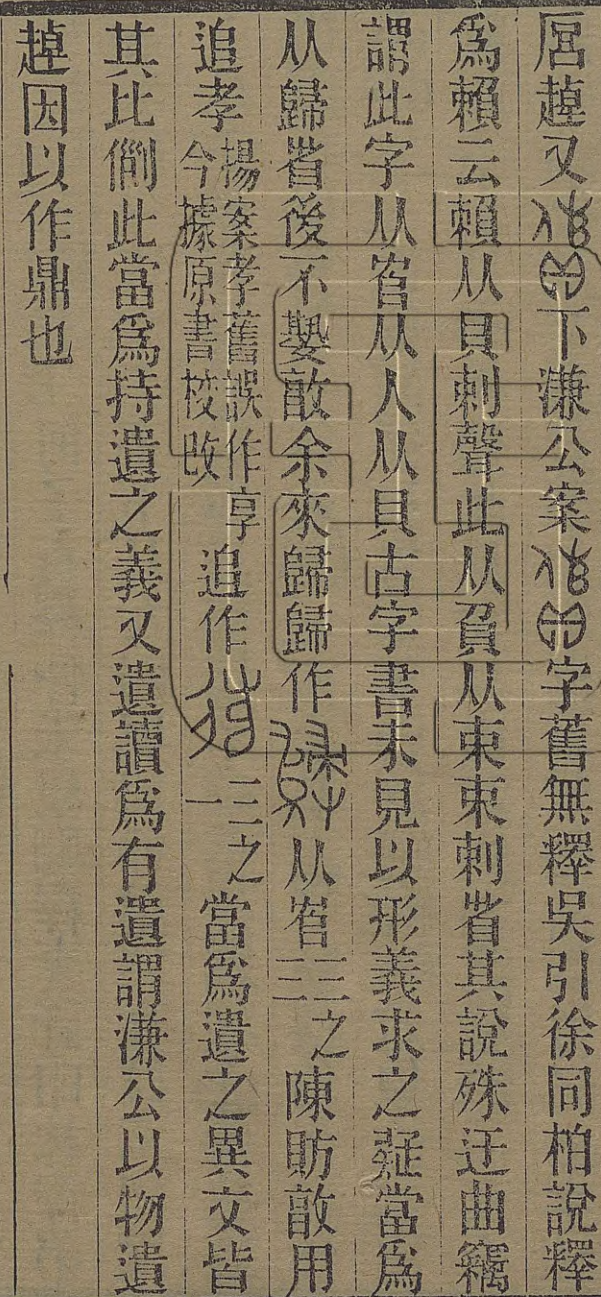 趠又下溓公案字舊無釋吳引徐同柏說釋
爲賴云賴从貝剌聲此从負从束束剌省其說殊迂曲竊
謂此字从从人从貝古字書未見以形義求之疑當爲
从歸省後不敦余來歸歸作从三之三陳昉敦用
追孝楊案孝舊誤作享今據原書校改追作三之一當爲遺之異文皆
其比例此當爲持遺之義又遺讀爲有遺謂溓公以物遺
趠因以作鼎也